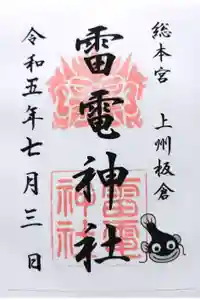 総本宮
上州板倉
雷電神社
令和五年七月三日
雷電
神社